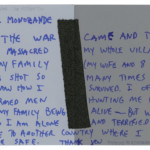 MOHUBANDE
THE WAR CAME AND T
MASSACRED MY WHOLE VILLA
MY FAMILY (MY WIFE AND 8
SHOT SO MANY TIMES
HOW I SURVIVED. I
ARMED MEN HUNTING ME
MY FAMILY BEING ALIVE - BUT W
I AM ALONE AND TERRIFIED
TO ANOTHER COUNTRY WHERE I
BE SAFE. THANK YOU